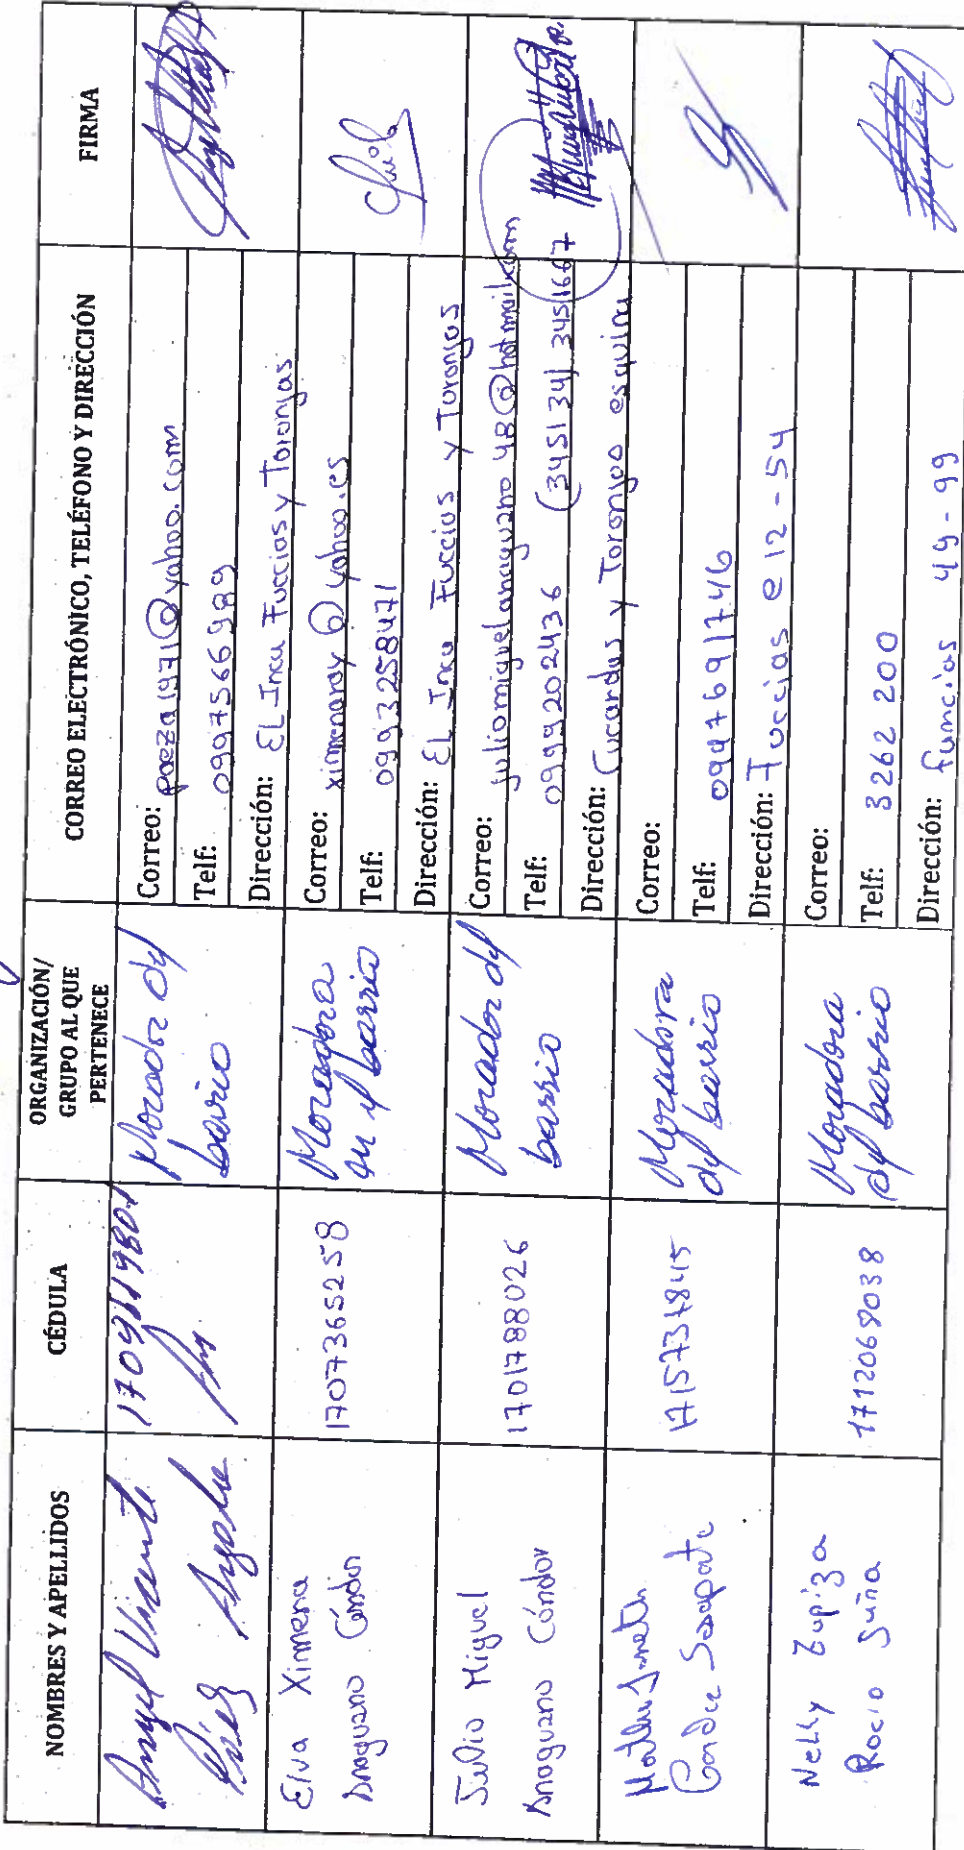 NOMBRES Y APELLIDOS
CÉDULA
ORGANIZACIÓN/
GRUPO AL QUE
PERTENECE
CORREO ELECTRÓNICO, TELÉFONO Y DIRECCIÓN
FIRMA
Angel Vicente
Páez
Morador del
barrio
Correo: paeza1971@yahoo.com
Telf: 0997566989
Dirección: EL Inca Fuccias y Toronjas
Elva Ximena
Anaguano Cóndor
1707365258
Moradora
en el barrio
Correo: ximenaray6@yahoo.es
Telf: 0993258471
Dirección: EL Inca Fuccias y Toronjas
Julio Miguel
Anaguano Cóndor
1701788026
Morador del
barrio
Correo: juliomiguelanaguano48@hotmail.com
Telf: 0999202436 (3451341 3451667
Dirección: Cucardas y Toronjas esquina
Janeth
1715737845
Moradora
del barrio
Correo:
Telf: 0997691746
Dirección: Fuscias e12-54
Nelly Zupiga
Rocio Suña
1712069038
Moradora
del barrio
Correo:
Telf: 3262 200
Dirección: funcias 49-99